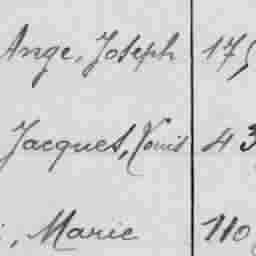 Ange, Joseph 17,
Jacques, Louis 43
, Marie 110